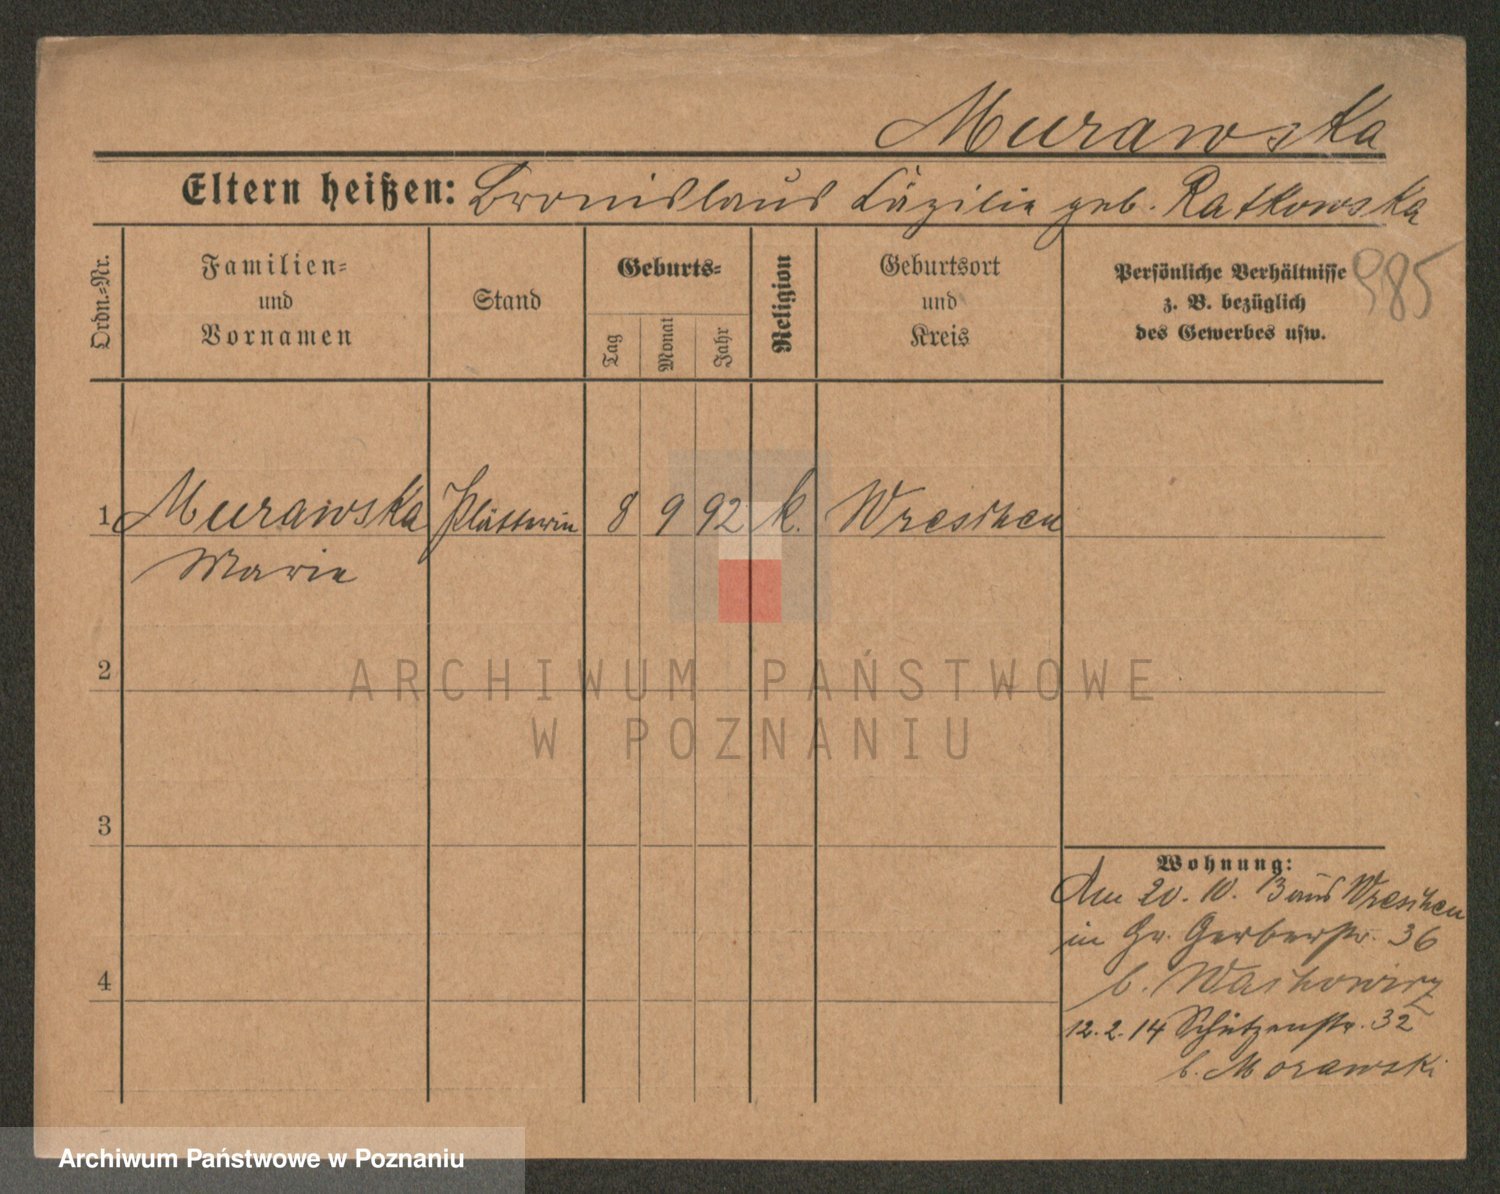 Murawska
Eltern heißen: Bronislaus Cäzilie geb. Ratkowska
Ordn.-Nr.
Familien-
und
Vornamen
Stand
Geburts-
Tag
Monat
Jahr
Religion
Geburtsort
und
Kreis
Persönliche Verhältnisse
z. B. bezüglich
des Gewerbes usw.
985
1 Murawska Plätterin 8 9 92 k. Wreschen
Marie
2
ARCHIWUM PAŃSTWOWE
W POZNANIU
3
Wohnung:
Am 20. 10. 13 aus Wreschen
in Gr. Gerberstr. 36
4
b. Waskowicz
12. 2. 14 Schützenstr. 32
b. Morawski
Archiwum Państwowe w Poznaniu